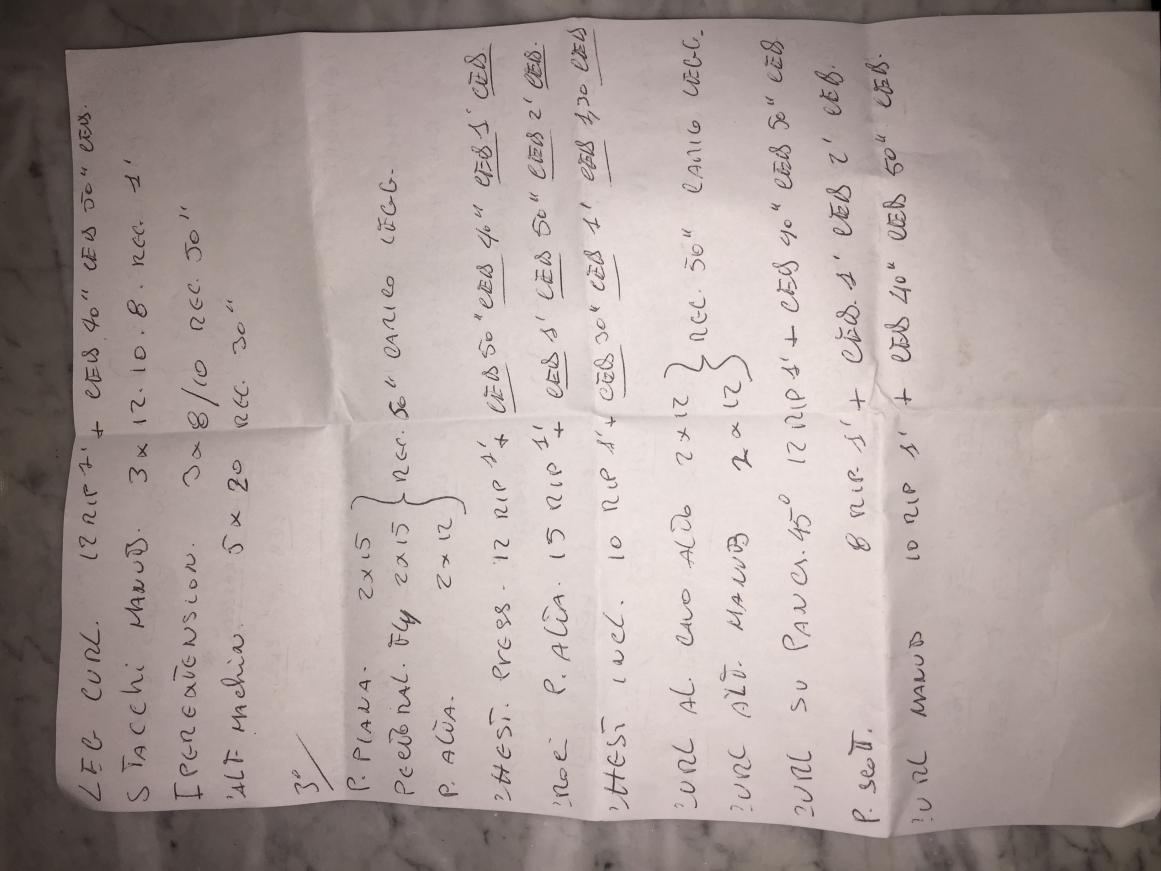 LEG CURL. 12 RIP 1' + CED 40" CED 50" CED.
STACCHI MANUB. 3 x 12. 10. 8. REC. 1'
IPEREXTENSION. 3 x 8/10 REC. 50"
CALF MACHIN. 5 x 20 REC. 30"
3°
P. PIANA. 2x15
PECTORAL. Fly 2x15 } REC. 50" CARICO LEGG.
P. ALTA. 2x12
CHEST. PRESS. 12 RIP 1' + CED 50" CED 40" CED 1' CED.
CROCI P. ALTA. 15 RIP 1' + CED 1' CED 50" CED 2' CED.
CHEST INCL. 10 RIP 1' + CED 30" CED 1' CED 1,30 CED
CURL AL. CAVO ALTO 2x12 } REC. 50" CARICO LEGG.
CURL ALT. MANUB 2x12
CURL SU PANCA. 45° 12 RIP 1' + CED 40" CED 50" CED
P. SCOTT. 8 RIP 1' + CED. 1' CED 2' CED.
CURL MANUB 10 RIP 1' + CED 40" CED 50" CED.